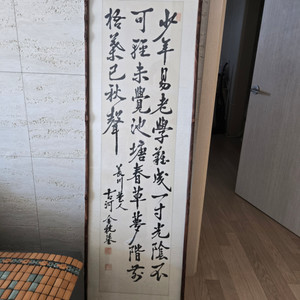 少年易老學難成一寸光陰不
可輕未覺池塘春草夢階前
梧葉已秋聲
川 人
古河 金